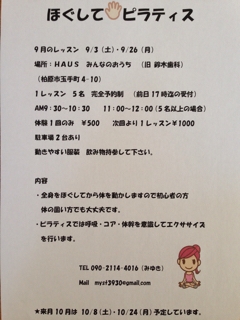 ほぐして ピラティス
9月のレッスン 9/3(土)・9/26(月)
場所:HAUS みんなのおうち (旧 鈴木歯科)
(柏原市玉手町4-10)
1レッスン 5名 完全予約制 (前日17時迄の受付)
AM9:30~10:30 11:00~12:00(5名以上の場合)
体験1回のみ ¥500 次回より1レッスン¥1000
駐車場2台あり
動きやすい服装 飲み物持参して下さい。
内容
・全身をほぐしてから体を動かしますので初心者の方
体の固い方でも大丈夫です。
・ピラティスでは呼吸・コア・体幹を意識してエクササイズ
を行います。
TEL 090-2114-4016(みゆき)
Mail myzf3930@gmail.com
*来月10月は 10/8(土)・10/24(月)予定しています。